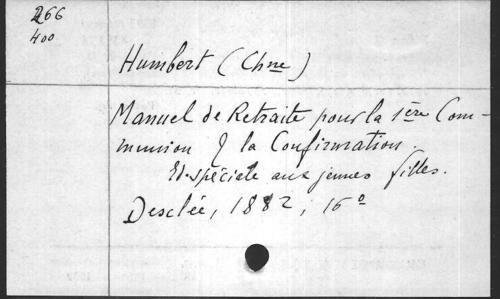 266
400
Humbert (Chne)
Manuel de Retraite pour la 1ère Com-
munion & la Confirmation.
Ed. spéciale aux jeunes filles.
Desclée, 1882, 16°